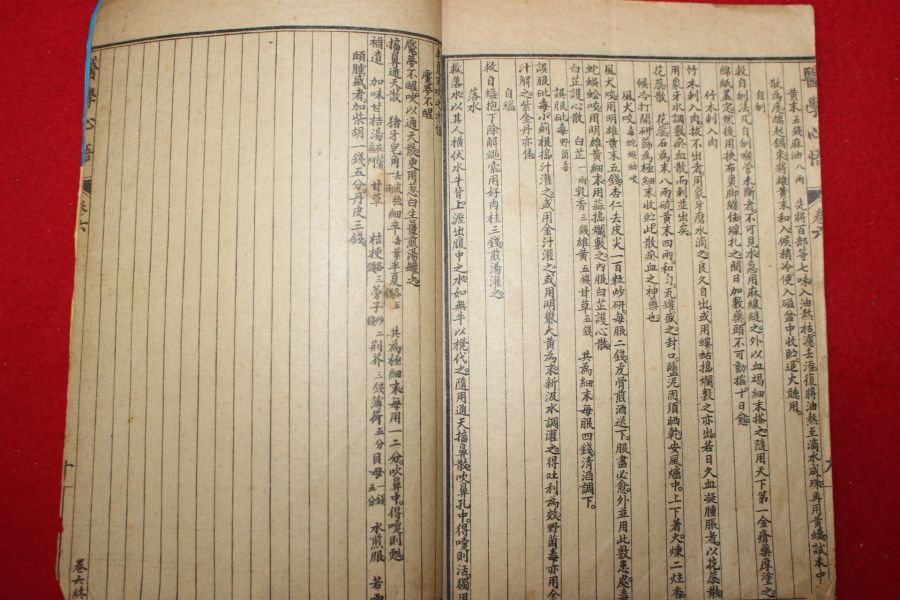 醫學心悟
卷六
黃末五錢麻油八兩 先將百部等七味入油熬枯濾去渣復將油熬至滴水成珠再用黃蠟試水中
散為度端起鍋來將雄黃末和入候稍冷便入磁盆中收貯退火聽用
自刎
救自刎法凡自刎喉管未斷者不可見水急用麻線縫之外以血竭細末搽之隨用天下第一金瘡藥厚塗之
綿紙蓋定然後用挾布裹腳纏住線扎之間日加敷藥頭不可動搖十日愈
竹木刺入肉
竹木刺入肉拔不出者用象牙磨水滴之良久自出或用螻蛄搗爛敷之亦出若日久血凝腫脹者以花蕊散
用象牙水調敷瘀血散而刺並出矣
花蕊散 花蕊石為末八兩硫黃末四兩和勻瓦罐盛之封口鹽泥固須晒乾安風爐中上下著火煉二炷香
候冷打開研篩為極細末收貯此散瘀血之神藥也
風犬咬毒蛇蜈蚣咬
風犬咬用明雄黃五錢杏仁去皮尖一百粒炒研每服二錢虎骨煎酒送下服盡必愈外並用此敷患處毒
蛇蜈蚣咬用明雄黃細末用蒜搗爛敷之內服白芷護心散
白芷護心散 白芷一兩乳香三錢雄黃五錢甘草五錢 共為細末每服四錢清酒調下
誤服砒毒野菌毒
誤服砒毒小薊根搗汁灌之或用金汁灌之或用明礬大黃為末新汲水調灌之得吐利為效野菌毒亦用金
汁解之紫金丹亦佳
自縊
救自縊抱下除解繩索用好肉桂三錢煎湯灌之
落水
救落水以其人橫伏水牛背上瀝出腹中之水如無牛以櫈代之隨用通天搐鼻散吹鼻孔中得嚏則活獨用
魘夢不醒
魘夢不醒吹以通天散更用葱白生薑煎湯灌之
搐鼻通天散 猪牙皂角去皮弦細辛去葉半夏各五錢 共為極細末每用一二分吹鼻中得嚏則甦
補遺 加味甘桔湯 甘草 桔梗各三錢旁子炒二錢荆芥三錢薄荷五分貝母一錢五分 水煎服 若兩
頤腫盛者加柴胡一錢五分丹皮三錢
醫學心悟
卷六
十
卷六終